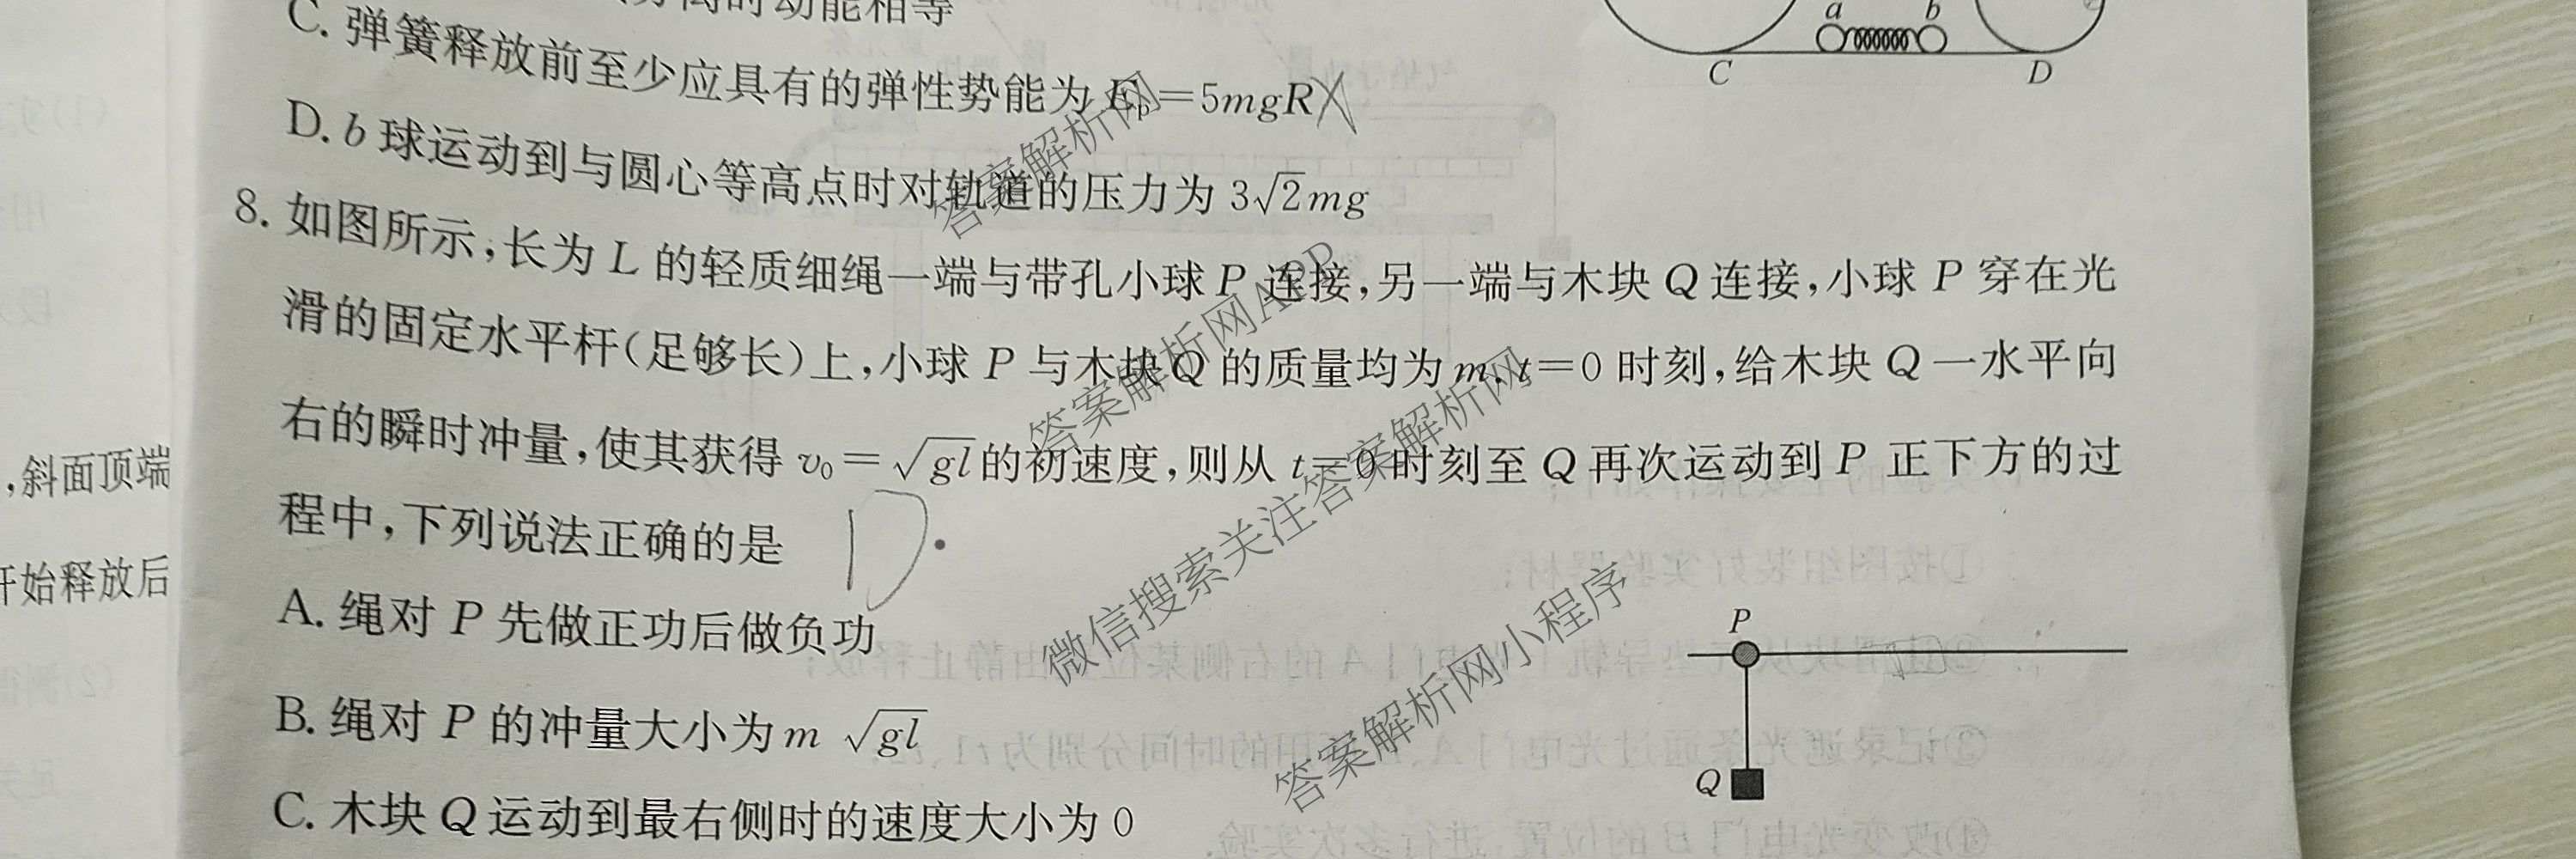 动能相等
C. 弹簧释放前至少应具有的弹性势能为 Eₚ=5mgR
a b
C D
D. b 球运动到与圆心等高点时对轨道的压力为 3√2mg
8. 如图所示,长为 L 的轻质细绳一端与带孔小球 P 连接,另一端与木块 Q 连接,小球 P 穿在光
滑的固定水平杆(足够长)上,小球 P 与木块 Q 的质量均为 m, t=0 时刻,给木块 Q 一水平向
右的瞬时冲量,使其获得 v₀=√gl 的初速度,则从 t=0 时刻至 Q 再次运动到 P 正下方的过
程中,下列说法正确的是 D.
A. 绳对 P 先做正功后做负功
B. 绳对 P 的冲量大小为 m √gl
C. 木块 Q 运动到最右侧时的速度大小为 0
P
Q
,斜面顶端
开始释放后
答案解析网
答案解析网APP
微信搜索关注答案解析网
答案解析网小程序